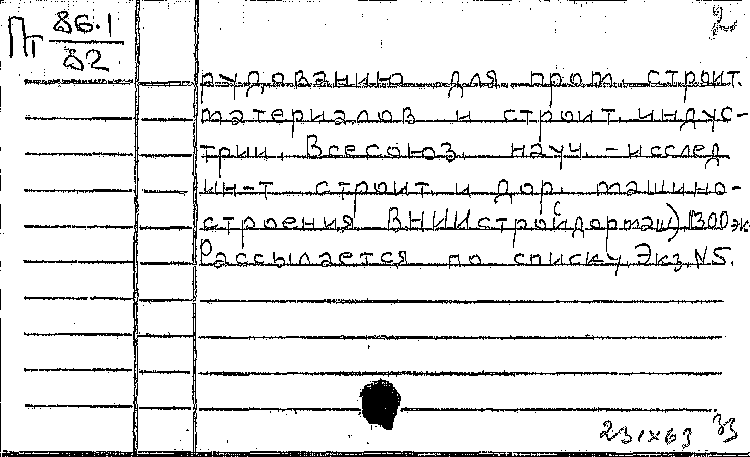 2
Пт 86.1
82
рудованию для пром. строит.
материалов и строит. индус-
трии. Всесоюз. науч.-исслед
ин-т строит. и дор. машино-
строения (ВНИИстройдормаш) 1300 эк
Рассылается по списку. Экз. N5.
23 IX 63 33